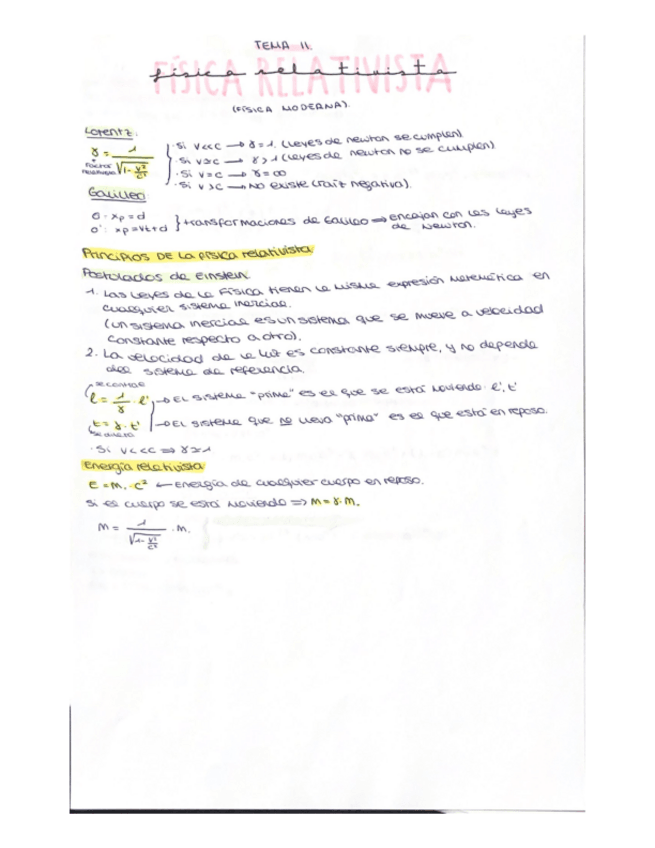 TEMA 11.
FÍSICA RELATIVISTA
física relativista
(FÍSICA MODERNA).
Lorentz:
γ = 1 / √1- v²/c²
factor relativista
· Si v<<c → γ=1. (Leyes de Newton se cumplen)
· Si v≈c → γ>1 (Leyes de Newton no se cumplen)
· Si v=c → γ=∞
· Si v>c → No existe (raíz negativa).
Galileo:
O: xp=d
O': xp=vt+d } transformaciones de Galileo ⇒ encajan con las leyes
de Newton.
Principios de la física relativista
Postulados de Einstein
1. Las leyes de la Física tienen la misma expresión matemática en
cualquier sistema inercial.
(un sistema inercial es un sistema que se mueve a velocidad
constante respecto a otro).
2. La velocidad de la luz es constante siempre, y no depende
del sistema de referencia.
se contrae
l = 1/γ · l' → El sistema "prima" es el que se está moviendo: l', t'
t = γ · t' → El sistema que no lleva "prima" es el que está en reposo.
se dilata
· Si v<<c ⇒ γ≈1
Energía relativista
E=m. · c² ← Energía de cualquier cuerpo en reposo.
Si el cuerpo se está moviendo ⇒ m=γ·m.
m = 1 / √1- v²/c² · m.